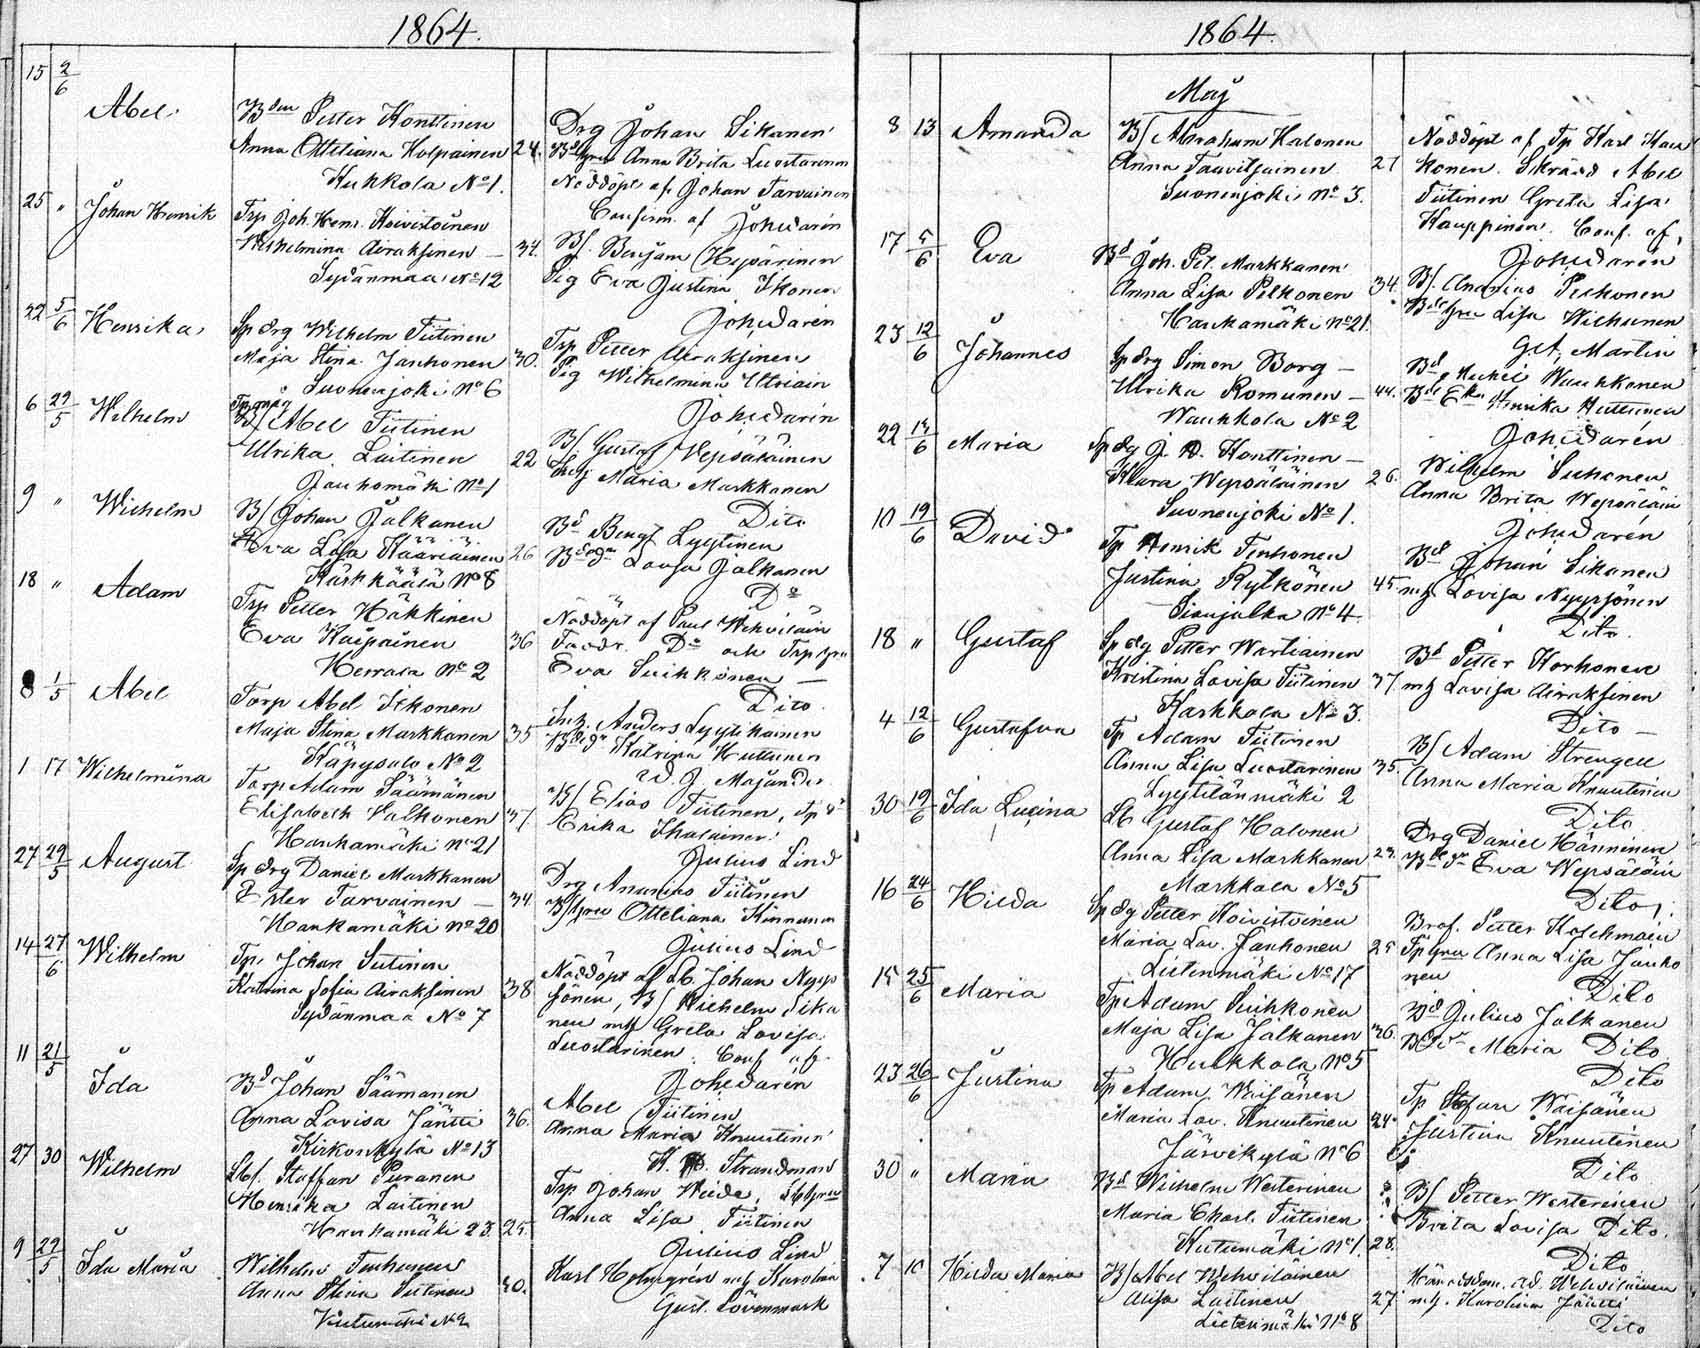 1864.
15 2/6 Abel
Bden Petter Konttinen
Anna Otteliana Holpainen 24.
Kukkola No 1.
Drg Johan Sikanen
Anna Brita Luostarinen
Nöddöpt af Johan Tarvainen
Confirm. af Joh. Darén
25 " Johan Henrik
Trp Joh. Henr. Koivistoinen
Wilhelmina Airaksinen — 34.
Sydänmaa No 12
B/. Benjam. Hypärinen
Pig Eva Justina Ikonen
Joh. Darén
22 5/6 Henrika
Sp drg Wilhelm Tiitinen
Maja Stina Janhonen 30.
Suonenjoki No 6
Trp Petter Airaksinen
Pig Wilhelmina
Joh. Darén
6 29/5 Wilhelm
B/ Abel Tiitinen
Ulrika Laitinen 22
Jauhomäki No 1
B/ Gustaf Wepsäläinen
Maria Markkanen
Dito
9 " Wilhelm
B/ Johan Jalkanen
Eva Lisa Kääriäinen 26
Kärkkäälä No 8
Bd Bengt Lyytinen
Lovisa Jalkanen
Do
18 " Adam
Trp Petter Häkkinen
Eva Kaipainen 36
Herrala No 2
Nöddöpt af Paul Wehviläin
Do och Trp
Eva Suihkonen —
Dito
8 1/5 Abel
Torp Abel Ikonen
Maja Stina Markkanen 35
Käpysalo No 2
Inh. Anders Lyytikäinen
Katrina Huttunen
J. Majander
1 17 Wilhelmina
Torp Adam Säämänen
Elisabeth Valkonen 37
Hankamäki No 21
B/ Elias Tiitinen,
Erika Ihalainen
Julius Lind
27 29/5 August
Sp drg Daniel Markkanen
Ester Tarvainen — 34.
Hankamäki No 20
Drg Ananias Tiitinen
Otteliana Kinnunen
Julius Lind
14 27/6 Wilhelm
Tp. Johan Tiitinen
Katrina Sofia Airaksinen 38
Sydänmaa No 7
Nöddöpt af Lb. Johan Nyyssönen, B/ Wilhelm Sika
nen mh Greta Lovisa
Luostarinen. Conf. af
Joh. Darén
11 21/5 Ida
Bd Johan Säämänen
Anna Lovisa Jäntti 36.
Kirkonkylä No 13
Abel Tiitinen
Anna Maria Knuutinen
Strandman
27 30 Wilhelm
Lbf. Staffan Puranen
Henrika Laitinen
Hankamäki 23. 25.
Trp Johan Weide,
Anna Lisa Tiitinen
Julius Lind
9 29/5 Ida Maria
Wilhelm Tenhunen
Anna Stina Tiitinen 40.
Kutumäki No 2
Karl Holmgrén mh Karolina
Gust. Lövenmark
1864.
Maj
8 13 Amanda
B/ Abraham Halonen
Anna Taavitsainen 27
Suonenjoki No 3.
Nöddöpt af Tp Karl Hau
konen. Skrädd Abel
Tiitinen Greta Lisa
Kauppinen. Conf. af
Joh. Darén
17 5/6 Eva
Bd Joh. Pet. Markkanen
Anna Lisa Pelkonen 34.
Hankamäki No 21.
B/. Ananias Pelkonen
Lisa Wilhunen
G. A. Martin
23 12/6 Johannes
Sp drg Simon Borg —
Ulrika Romunen — 44.
Wauhkola No 2
Bd Heikki Wauhkonen
Henrika Huttunen
Joh. Darén
22 14/6 Maria
Sp dg J. D. Konttinen —
Klara Wepsäläinen 26.
Suonenjoki No 1.
Wilhelm Suhonen
Anna Brita Wepsäläin
Joh. Darén
10 19/6 David
Tp Henrik Tenhonen
Justina Rytkönen 45.
Sianjalka No 4.
Bd Johan Sikanen
mh Lovisa Nyyssönen
Dito.
18 " Gustaf
Sp dg Petter Wartiainen
Kristina Lovisa Tiitinen 37.
Karkkola No 3.
Bd Petter Korhonen
mh Lovisa Airaksinen
Dito —
4 12/6 Gustafva
Tp Adam Tiitinen
Anna Lisa Luostarinen 35.
Lyytilänmäki 2
B/ Adam Strengell
Anna Maria Knuutinen
Dito
30 19/6 Ida Lucina
Lb Gustaf Halonen
Anna Lisa Markkanen 23.
Markkala No 5
Drg Daniel Hänninen
Eva Wepsäläin
Dito.
16 24/6 Hilda
Sp dg Petter Koivistoinen
Maria Lov. Janhonen 25
Lietenmäki No 17
Petter Koschmain
Anna Lisa Janho
nen
Dito
15 25/6 Maria
Tp Adam Suihkonen
Maja Lisa Jalkanen 36.
Kukkola No 5
Bd Julius Jalkanen
Maria Dito
Dito
23 26/6 Justina
Tp Adam Waisänen
Maria Lov. Knuutinen 24
Järvikylä No 6
Tp Stefan Waisänen
Justina Knuutinen
Dito
30 " Maria
Bd Wilhelm Westerinen
Maria Charl. Tiitinen
Kutumäki No 1. 28.
B/ Petter Westerinen
Brita Lovisa Dito.
Dito
7 10 Hilda Maria
B/ Abel Wehviläinen
Alisa Laitinen 27
Lietenmäki No 8
Ad. Wehviläinen
mh. Karolina Jäntti
Dito